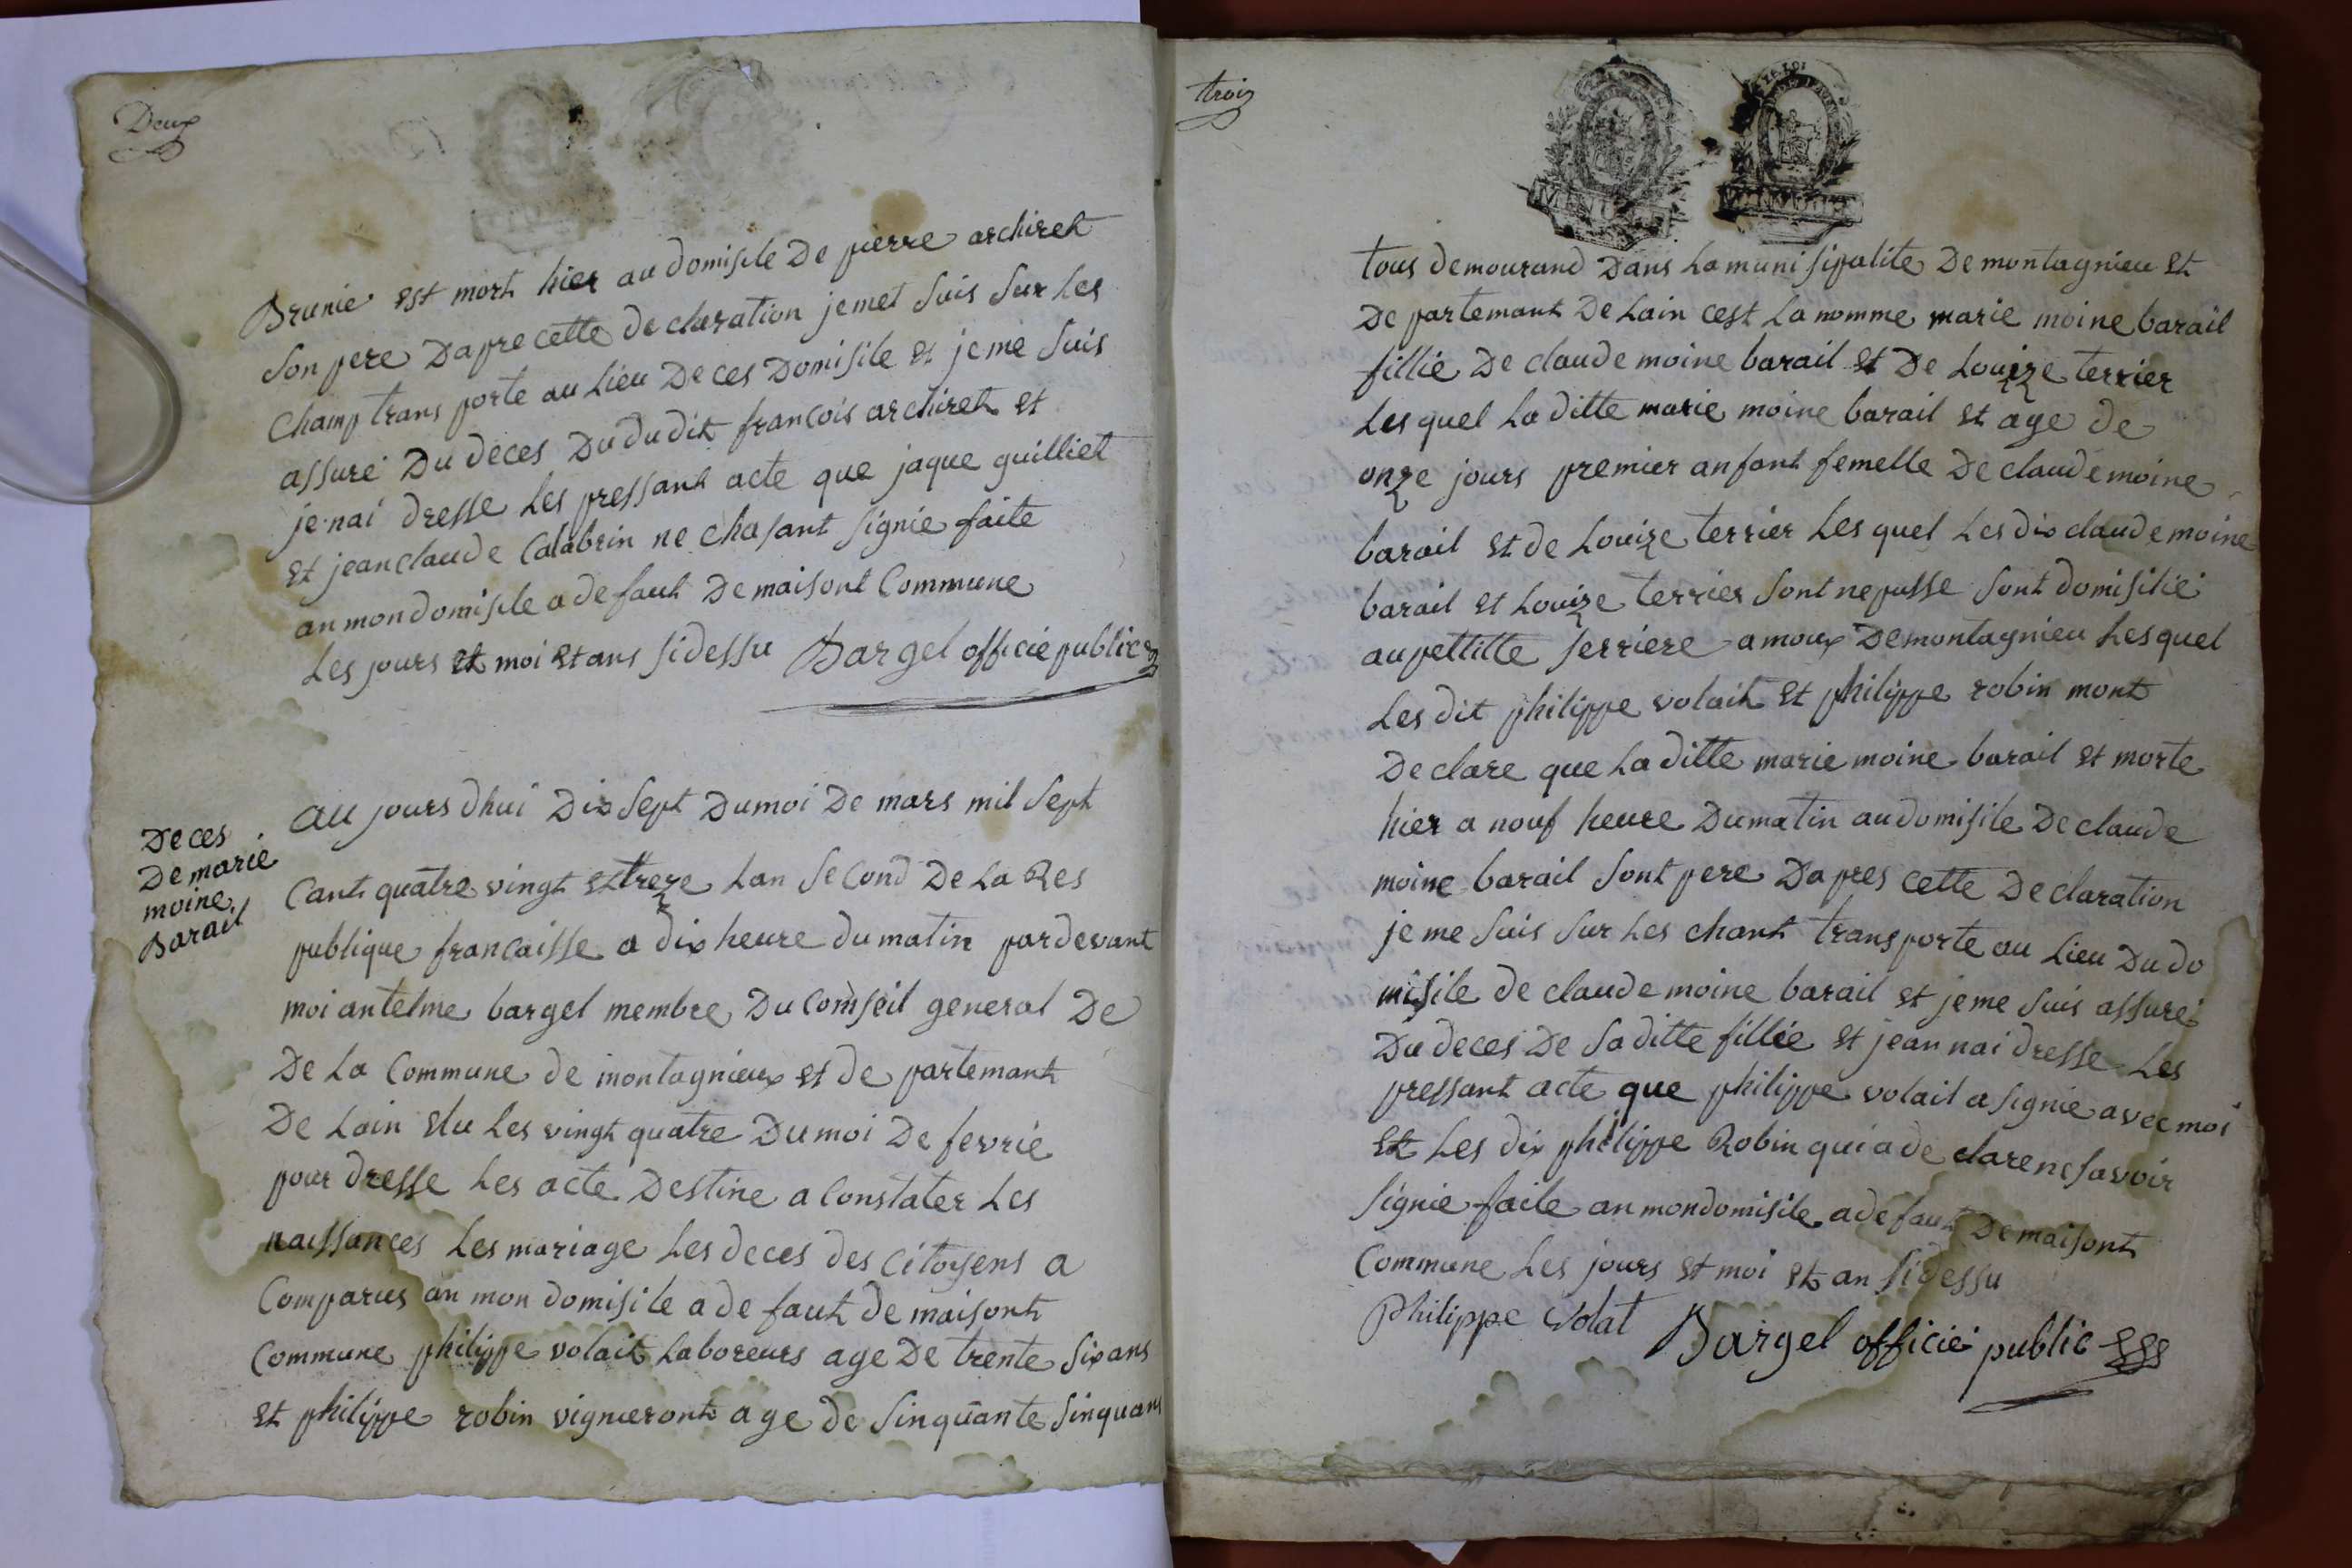 Deux
Brunie est mort hier au domisile De pierre archiret
Son pere Dapre cette de claration jemet suis sur les
champ trans porte au lieu De ces Domisile et je me suis
assuré Du deces Du du dit francois archiret et
je nai dresse les pressant acte que jaque guilliet
et jean claude Calabrin ne chasant signie faite
an mon domisile a de faut De maisont Commune
les jours et moi et ans sidessu Bargel officie public
Deces
De marie
moine
Barail
au jours dhui Dix sept Du moi De mars mil sept
Cant quatre vingt et treze lan se Cond De la Res
publique francaisse a dix heure du matin par devant
moi antelme bargel membre Du Comseil general De
De la Commune de montagnieux et de partemant
De lain élu les vingt quatre Du moi De fevrie
pour dresse les acte Destine a Constater les
naissances les mariage les deces des Citoyens a
Comparus an mon domisile a de faut de maisont
Commune philippe volait laboreurs age De trente six ans
et philippe robin vigneront age de sinquante sinq ans
trois
LA LOI
MINUTE
tous demourand Dans la muni sipalite De montagnieu et
De partemant De lain cest la nomme marie moine barail
fillie De claude moine barail et De Louize terrier
les quel la ditte marie moine barail et age de
onze jours premier anfant femelle De claude moine
barail et de Louize terrier les quel les dix claude moine
barail et Louize terrier sont ne passe sont domisilié
au pettitte serriere a moux De montagnieu les quel
les dit philippe volait et philippe robin mont
De clare que la ditte marie moine barail et morte
hier a nouf heure Du matin au domisile De claude
moine barail sont pere Dapres cette De claration
je me suis sur les chant transporte au lieu Du do
misile de claude moine barail et je me suis assuré
Du deces De sa ditte fillie et jean nai dresse les
pressant acte que philippe volait a signie avec moi
et les dix philippe Robin qui a de clare ne savoir
signie faite an mon domisile a de faut De maisont
Commune les jours et moi et an sidessu
philippe volat Bargel officié public